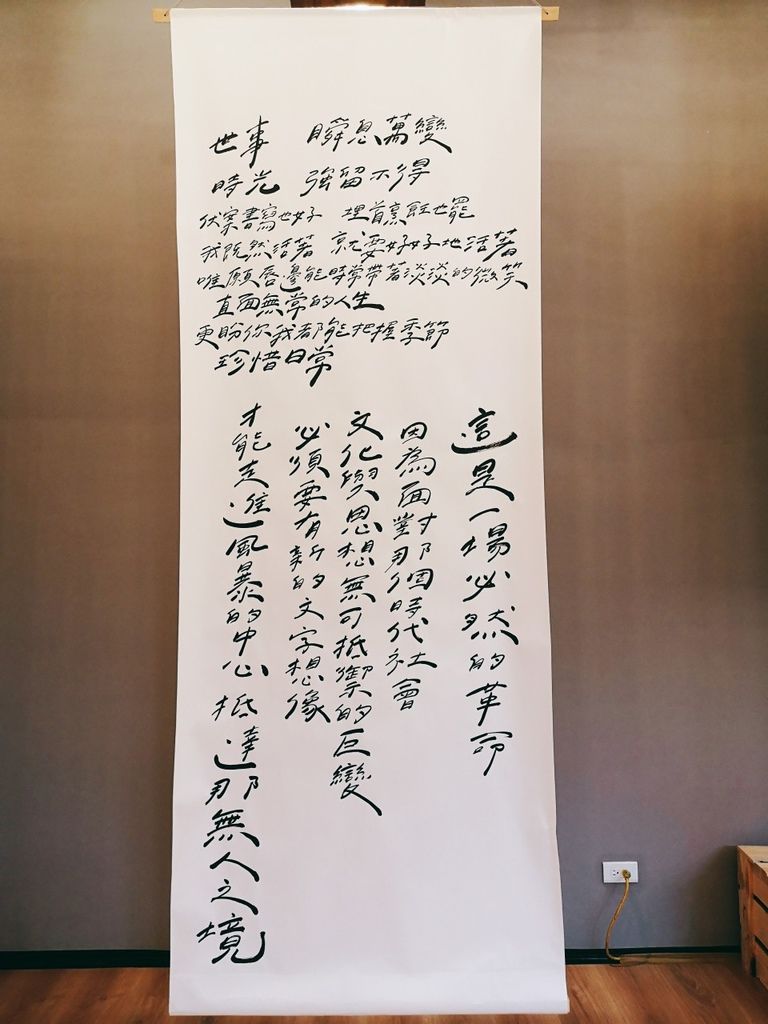 世事 瞬息萬變
時光 強留不得
伏案書寫也好 埋首烹飪也罷
我既然活著 就要好好地活著
唯願唇邊能時常帶著淡淡的微笑
直面無常的人生
更盼你我都能把握季節
珍惜日常
這是一場必然的革命
因為面對那個時代社會
文化與思想無可抵禦的巨變
必須要有新的文字想像
才能走進風暴的中心 抵達那無人之境